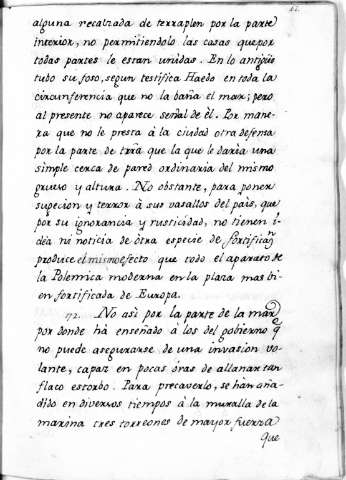 alguna recalzada de terraplen por la parte
interior, no permitiendolo las casas que por
todas partes le estan unidas. En lo antiguo
tubo su foso, segun testifica Haedo en toda la
circunferencia que no la baña el mar; pero
al presente no aparece señal de èl. Por mane-
ra que no le presta à la ciudad otra defensa
por la parte de trra que la que le daria una
simple cerca de pared ordinaria del mismo
grueso y altura. No obstante, para poner
sugecion y terror à sus vasallos del pais, que
por su ignorancia y rusticidad, no tienen i-
dèa ni noticia de òtra especie de fortificaⁿ
produce el mismo efecto que todo el aparato de
la Polemica moderna en la plaza mas bi-
en fortificada de Europa.
72. No asi por la parte de la mar,
por donde hà enseñado à los del gobierno q̃
no puede asegurarse de una invasion vo-
lante, capaz en pocas óras de allanar tan
flaco estorbo. Para precaverlo, se han aña-
dido en diversos tiempos à la muralla de la
marina tres torreones de mayor fuerza
que